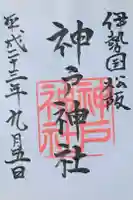 伊勢国松阪
神戸神社
神戸神社
平成二十三年九月五日